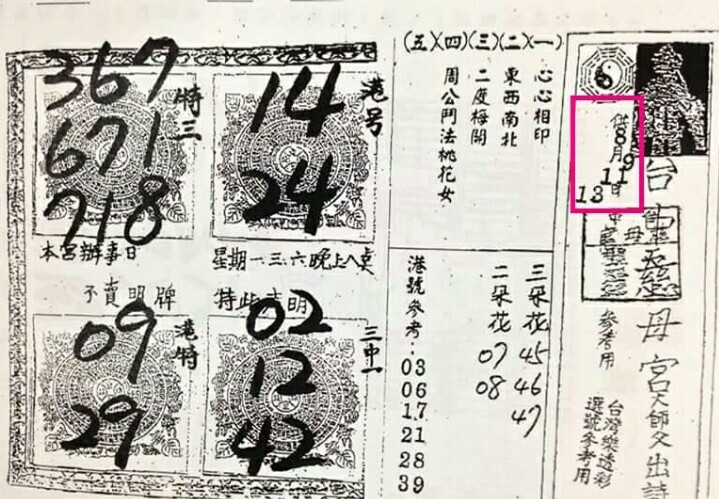 台中慈母宮大師父出詩
慈母
靈
參考用
台灣樂透彩
選號參考用
供8月9日
11
13
(五)(四)(三)(二)(一)
心心相印
東西南北
二度梅開
周公鬥法桃花女
三朵花 45 46 47
二朵花 07 08
港號參考:
03
06
17
21
28
39
港号
14
24
特三
367
671
718
本宮辦事日
星期一.三.六晚上八點
不賣明牌
特此
明
三中一
02
12
42
港特
09
29